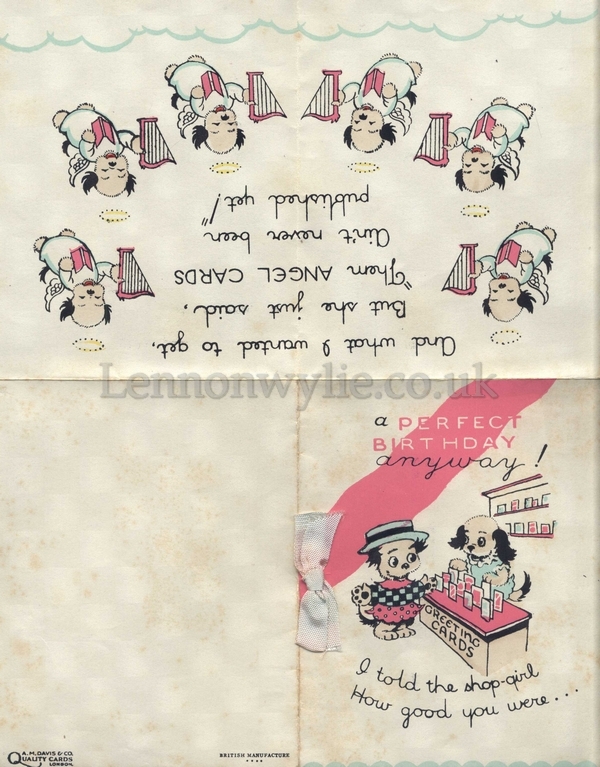 a PERFECT
BIRTHDAY
anyway!
GREETING
CARDS
I told the shop-girl
How good you were...
And what I wanted to get,
But she just said,
"Them ANGEL CARDS
Ain't never been
published yet!"
A. M. DAVIS & CO.
QUALITY CARDS
LONDON
BRITISH MANUFACTURE
Lennonwylie.co.uk